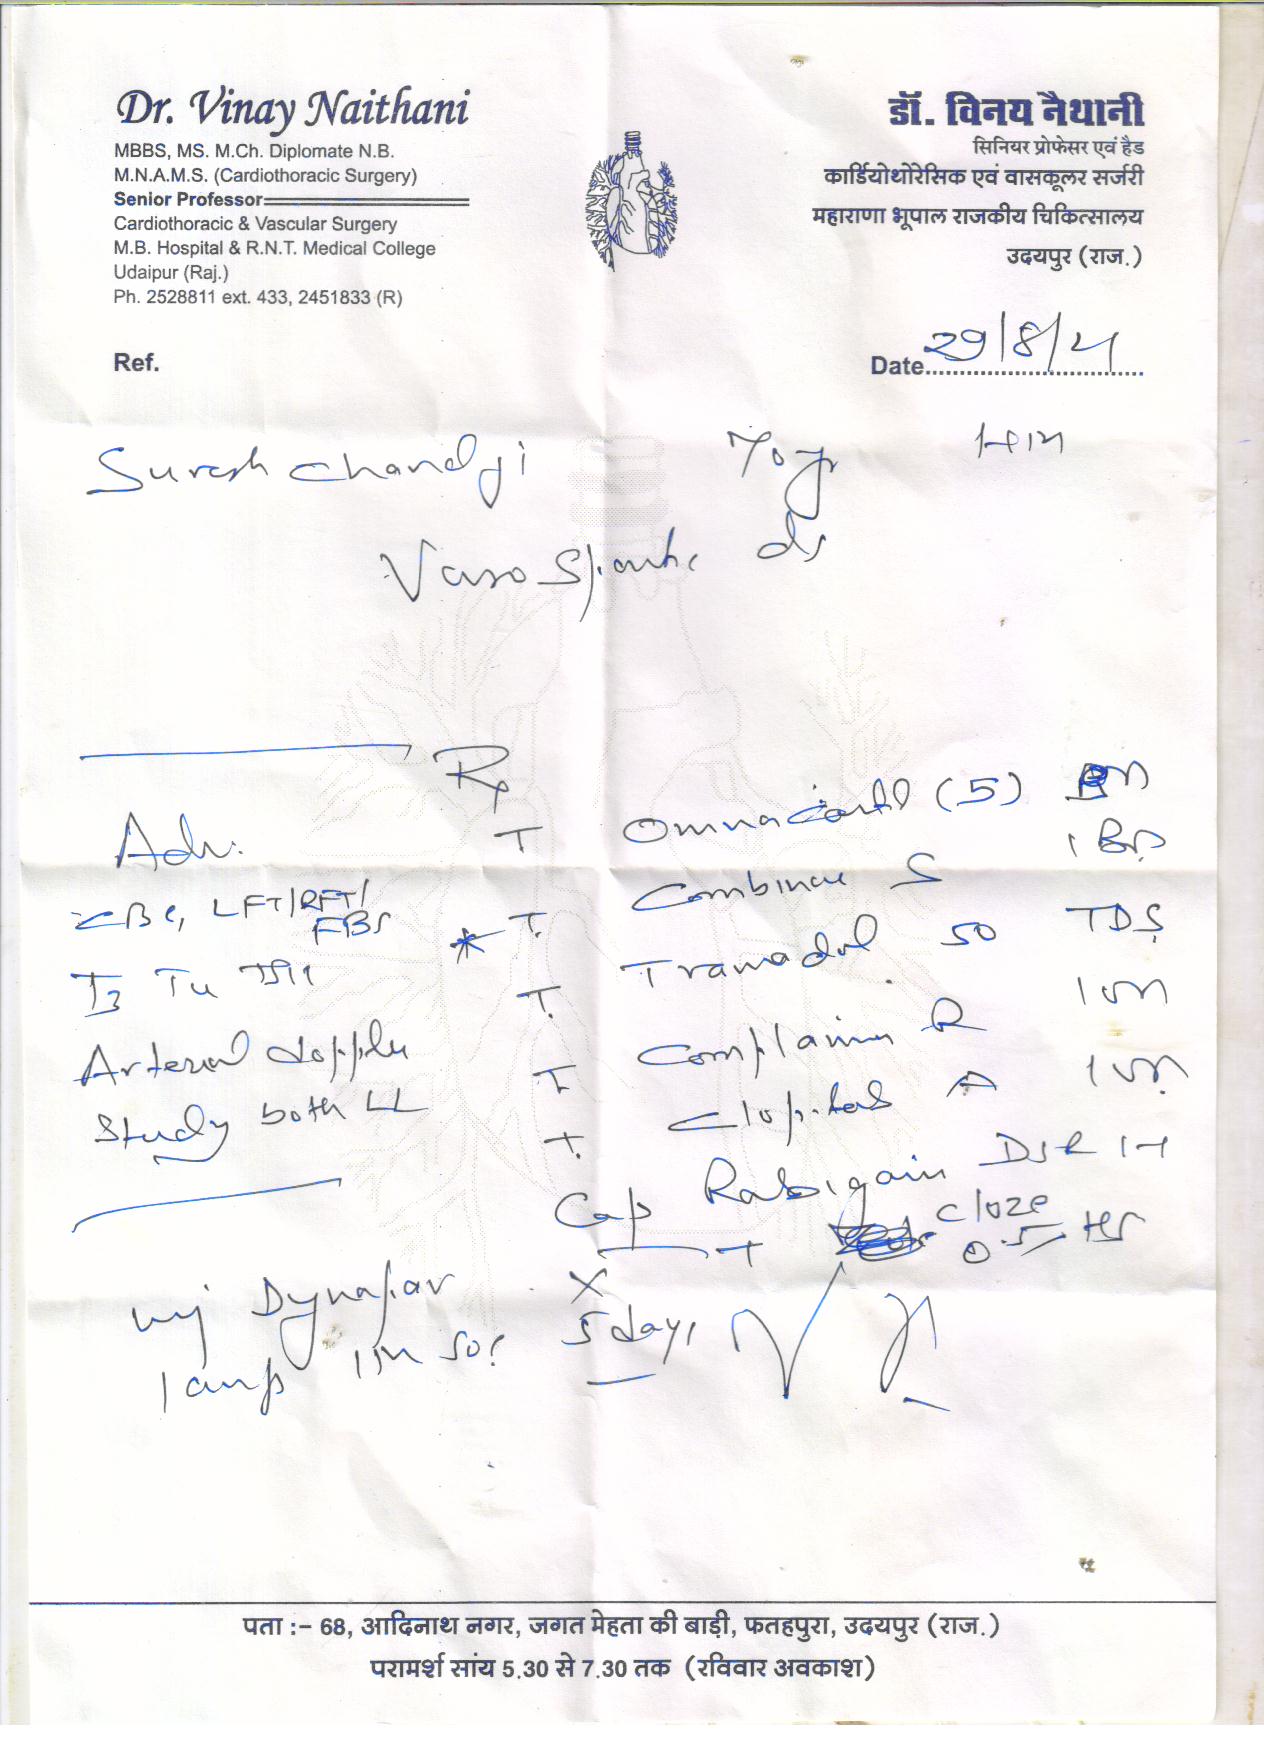 Dr. Vinay Naithani
MBBS, MS. M.Ch. Diplomate N.B.
M.N.A.M.S. (Cardiothoracic Surgery)
Senior Professor
Cardiothoracic & Vascular Surgery
M.B. Hospital & R.N.T. Medical College
Udaipur (Raj.)
Ph. 2528811 ext. 433, 2451833 (R)
डॉ. विनय नैथानी
सिनियर प्रोफेसर एवं हैड
कार्डियोथोरेसिक एवं वासकूलर सर्जरी
महाराणा भूपाल राजकीय चिकित्सालय
उदयपुर (राज.)
Ref.
Date 29/8/21
Suresh Chandji 70 yr
Vaso Spastic ds
Rx
T Omnacortil (5)
T. Combinae S 1 BD
* T. Tramadol 50 TDS
T. Complamin R
T. Clopitab A
Cap Rabigain DSR
T Cloze 0.5 HS
X 5 days
Adv.
CBC, LFT/RFT/
FBS
T3 T4 TSH
Arterial doppler
Study both LL
inj Dynapar
1 amp IM SOS
पता :- 68, आदिनाथ नगर, जगत मेहता की बाड़ी, फतहपुरा, उदयपुर (राज.)
परामर्श सांय 5.30 से 7.30 तक (रविवार अवकाश)